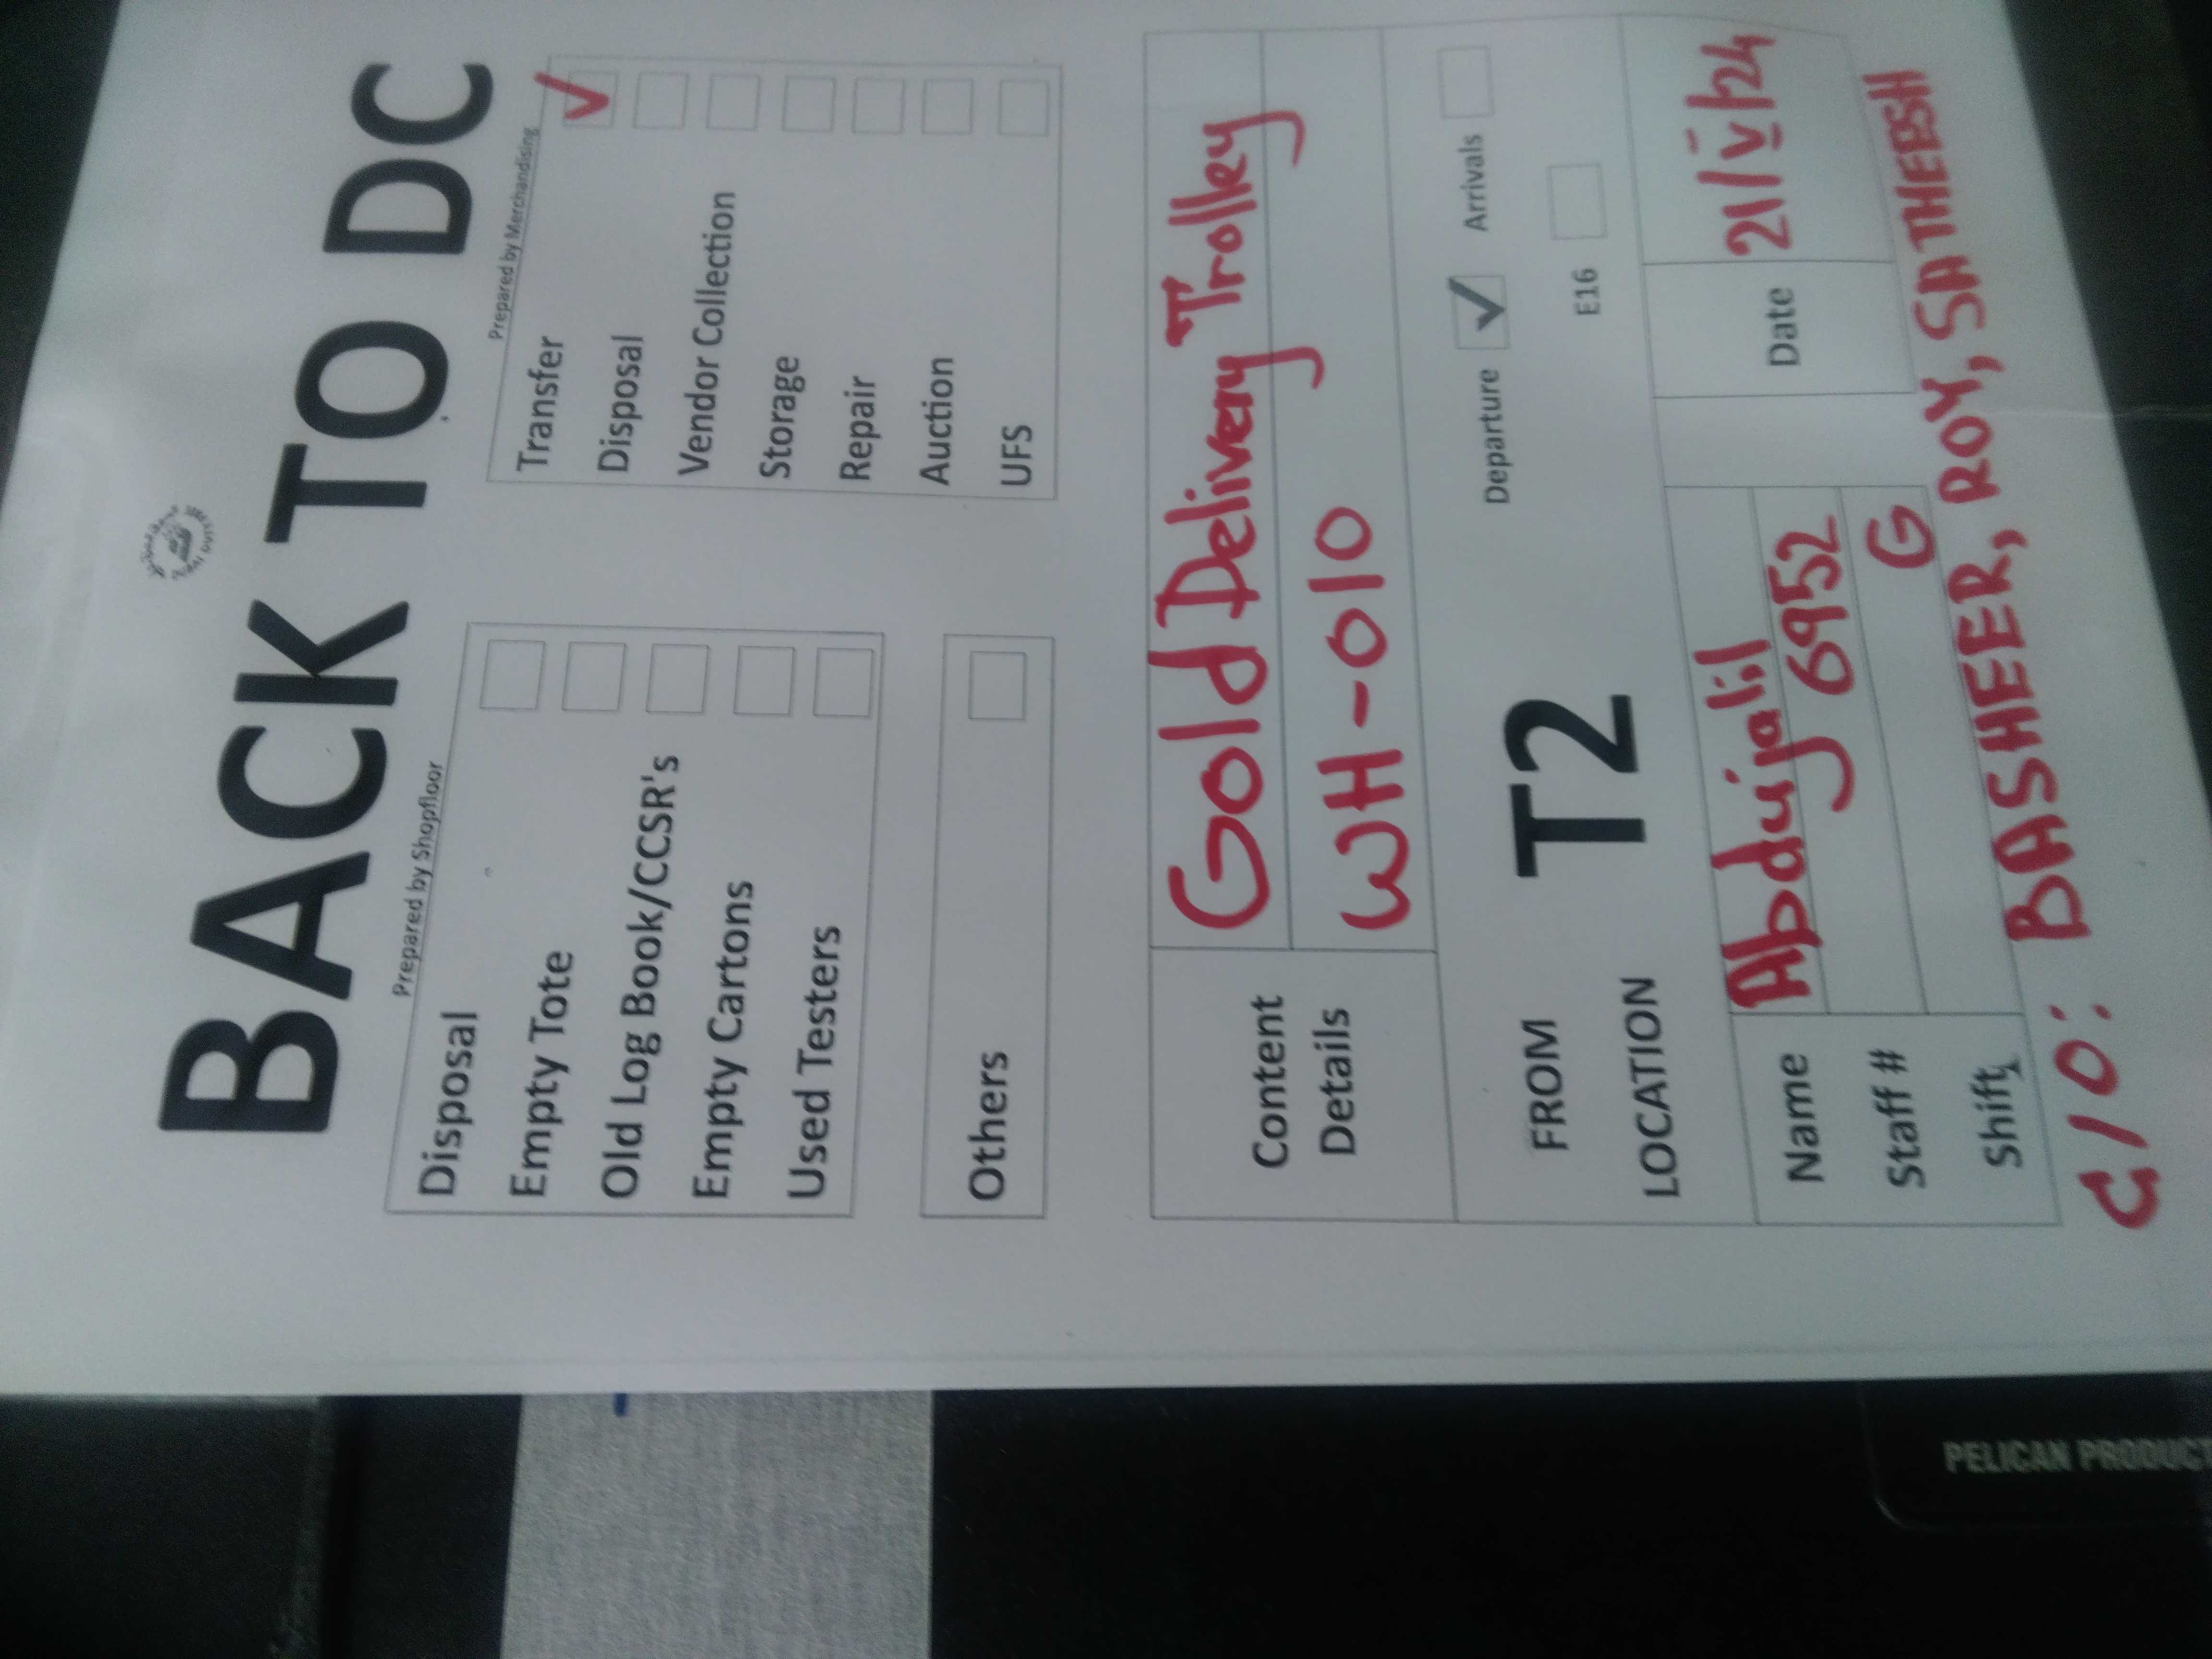 BACK TO DC
Prepared by Shopfloor
Disposal
Empty Tote
Old Log Book/CCSR's
Empty Cartons
Used Testers
Others
Prepared by Merchandising
Transfer ✓
Disposal
Vendor Collection
Storage
Repair
Auction
UFS
Content Details
Gold Delivery Trolley
WH-010
FROM LOCATION
T2
Departure ✓ Arrivals
E16
Name Abdujalil
Staff # 6952
Shift G
Date 21/V/24
C/O: BASHEER, ROY, SATHEESH
PELICAN PRODUCT